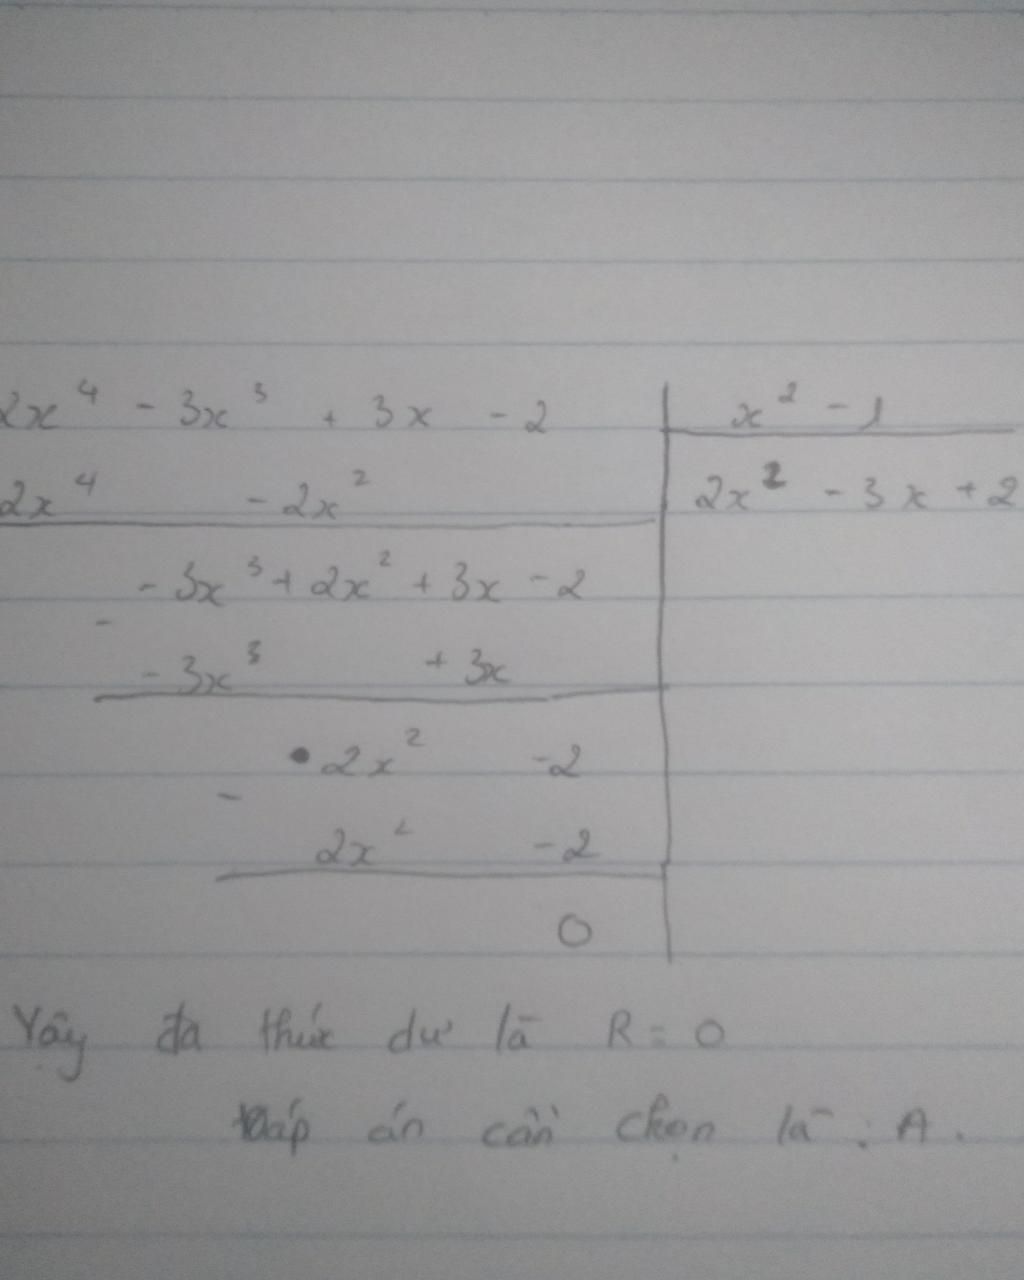 2x⁴ - 3x³ + 3x - 2 | x² - 1
2x⁴ - 2x² | 2x² - 3x + 2
- 3x³ + 2x² + 3x - 2
-
- 3x³ + 3x
2x² - 2
-
2x² - 2
0
Vậy đa thức dư là R = 0
Đáp án cần chọn là : A.